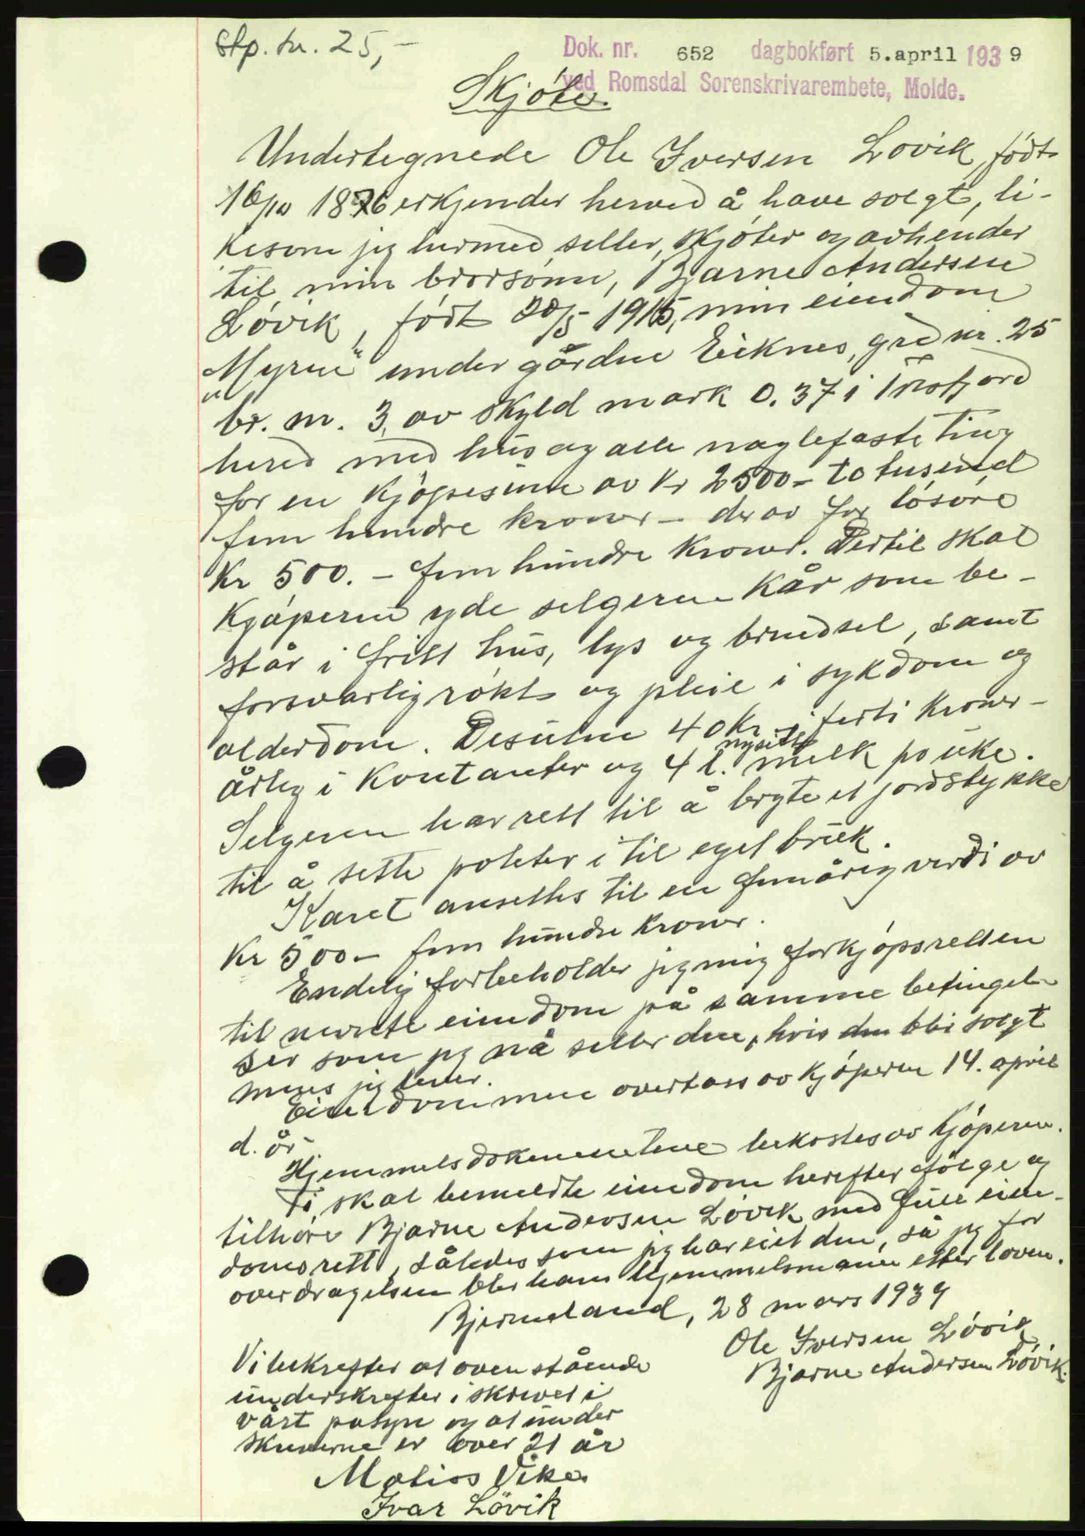 Stp. kr. 25,-
Dok. nr. 652 dagbokført 5. april 1939
ved Romsdal Sorenskrivarembete, Molde.
Skjöte.
Undertegnede Ole Iversen Lovik, födt
16/10 1876 erkjender herved å have solgt, li-
kesom jeg hermed seller, skjöter og avhender
til min brorsönn, Bjarne Andersen
Lövik, födt 20/5 1915, min eiendom
"Myren" under gården Eiknes, grd nr. 25
br. nr. 3, av skyld mark 0.37 i Tresfjord
hered med hus og alle naglefaste ting
for en kjöpesum av kr 2500 - to tusend
fem hundre kroner - derav for lösöre
Kr 500. - fem hundre kroner. Dertil skal
Kjöperen yde selgeren kår som be-
står i fritt hus, lys og brendsel, samt
forsvarlig rökt og pleie i sykdom og
alderdom. Desuten 40 kr - förti kroner -
årlig i kontanter og 4 l. nysilt melk po uke.
Selgeren har rett til å bryte et jordstykke
til å sette poteter i til eget bruk.
Kåret ansettes til en femårig verdi av
Kr 500 - fem hundre kroner.
Endelig forbeholder jeg mig forkjöpsretten
til nevnte eiendom på samme betingel-
ser som jeg nå seller den, hvis den blir solgt
mens jeg lever.
Eiendommen overtass av kjöperen 14. april
d. år.
Hjemmelsdokumentene bekostes av kjöperen.
Ti skal bemeldte eiendom herefter fölge og
tilhöre Bjarne Andersen Lövik med full eien-
domsrett, således som jeg har eiet den, så jeg for
overdragelsen blir hans hjemmelsmann etter loven.
Bjermeland, 28 mars 1939
Ole Iversen Lövik
Bjarne Andersen Lövik.
Vi bekrefter at ovenstående
underskrefter i skrevet i
vårt påsyn og at under
skriverne er over 21 år
Matias Vike
Ivar Lövik